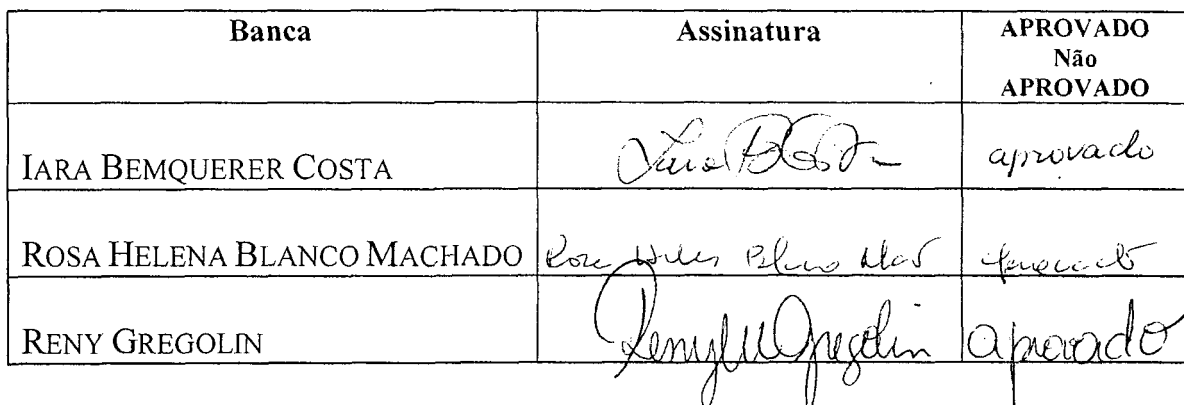 Banca Assinatura APROVADO
Não
APROVADO
IARA BEMQUERER COSTA Iara B Costa aprovado
ROSA HELENA BLANCO MACHADO Rosa Helena Blanco aprovado
RENY GREGOLIN Reny M Gregolin aprovado